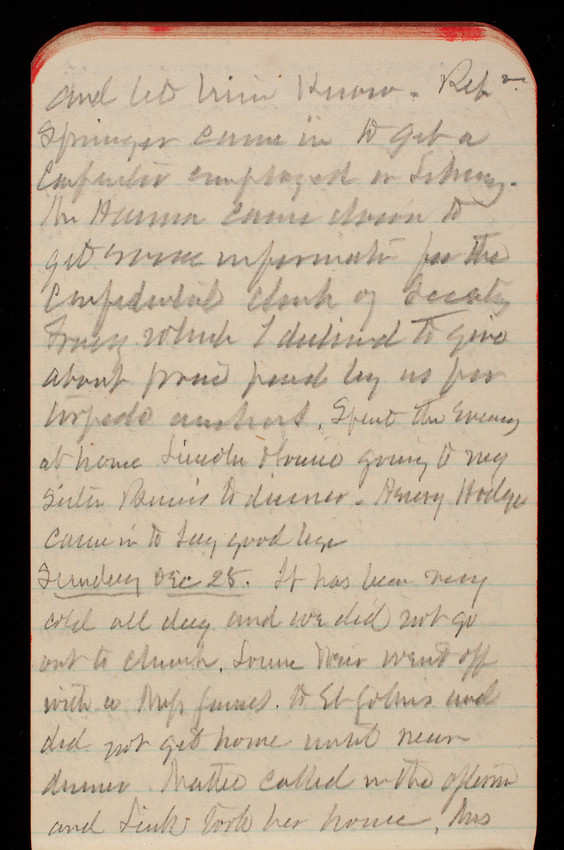 and let him know. Rep r.
Springer came in to get a
Carpenter employed on Library.
Mr Hanna came down to
get some informatn for the
Confidential clerk of Secaty
Tracy which I declined to give
about price paid by us for
torpedo anchors. Spent the Evening
at home Lincoln & going to my
Sister to dinner. Henry Hodges
came in to say good bye
Sunday Dec 28. It has been very
cold all day and we did not go
out to church. went off
with a Miss James. to St Johns and
did not get home until near
dinner Mattie called in the afternn
and Link took her home, Mrs